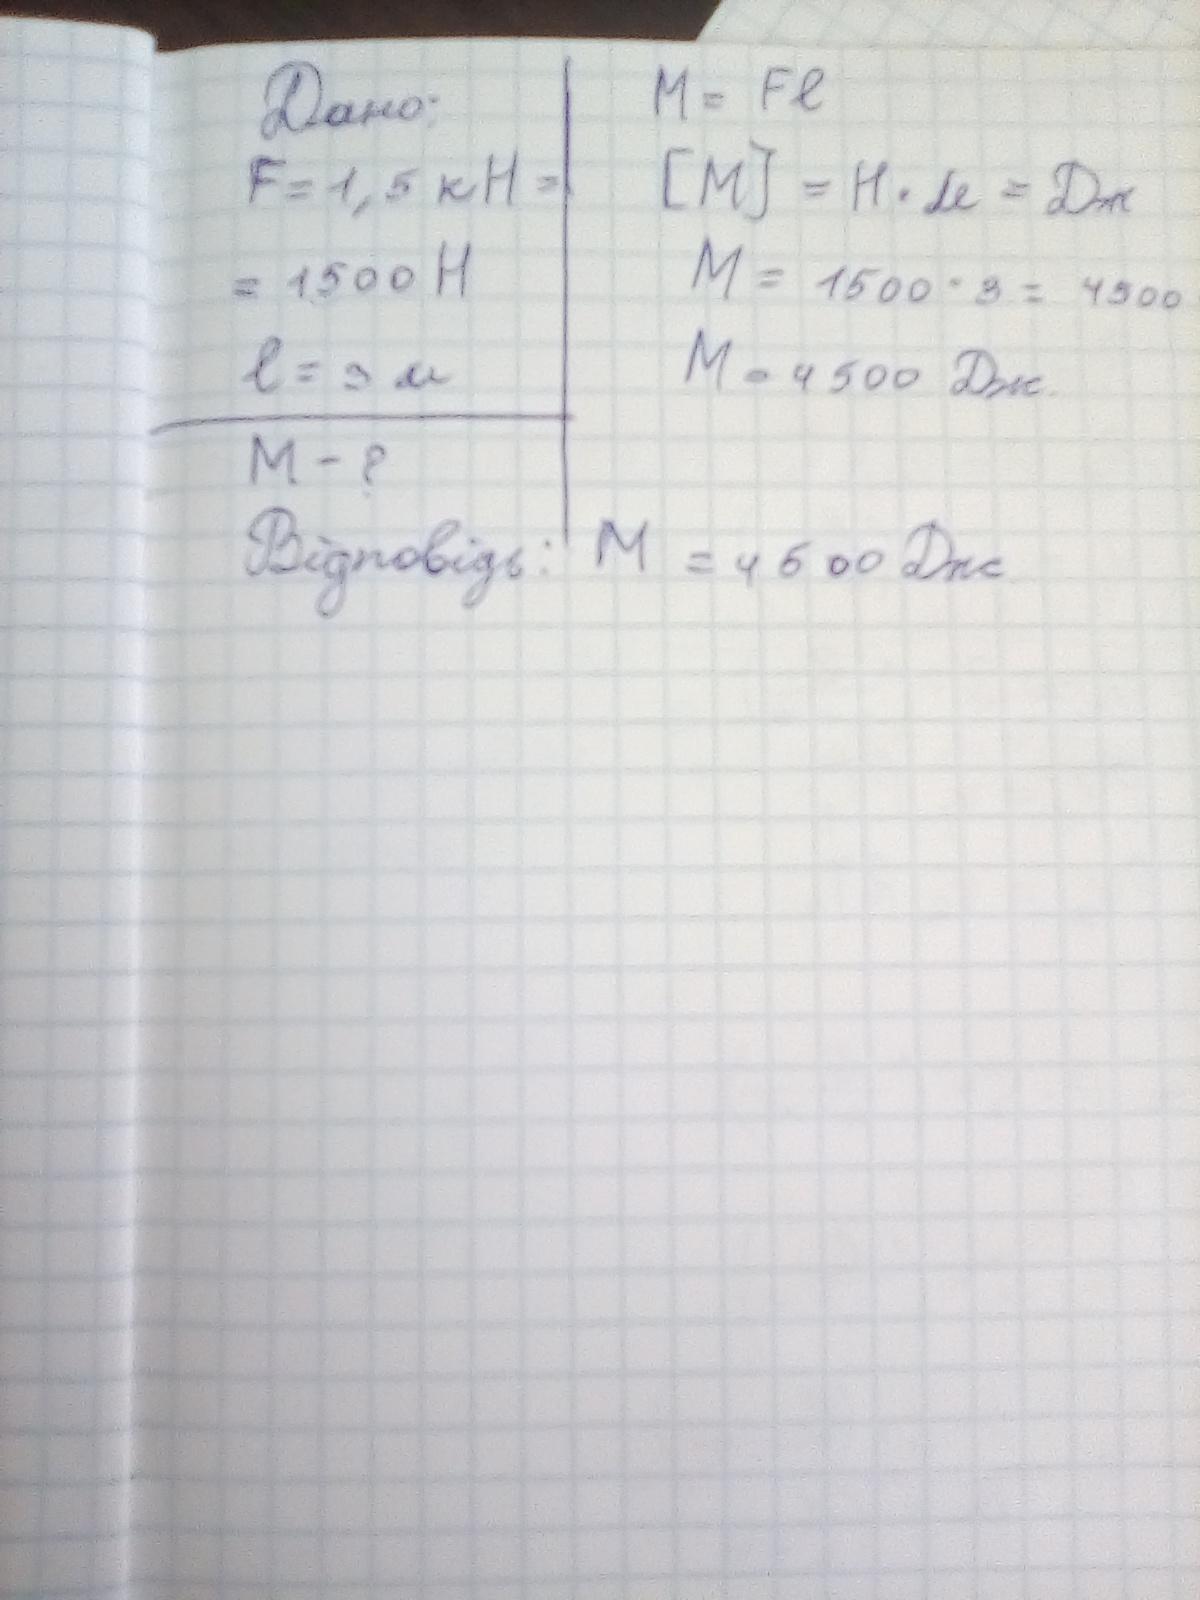 Дано:
F = 1,5 кН =
= 1500 Н
l = 3 м
М - ?
M = Fl
[M] = Н · м = Дж
M = 1500 · 3 = 4500
M = 4500 Дж.
Відповідь: M = 4500 Дж